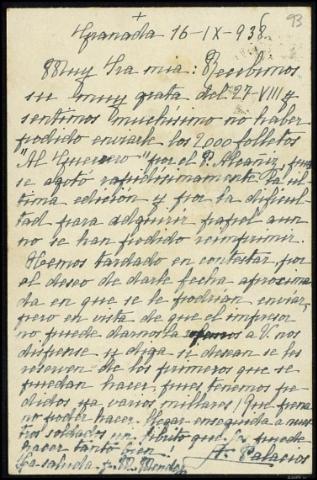 93
+
Granada 16-IX-938.
Muy Sra mia: Recibimos
su muy grata del 27-VIII y
sentimos muchisimo no haber
podido enviarle los 2000 folletos
"Al Guerrero" por el P. Alcañiz, pues
se agotó rapidisimamente la úl
tima edición y por la dificul
tad para adquirir papel aun
no se han podido reimprimir.
Hemos tardado en contestar por
el deseo de darle fecha aproxima
da en que se le podrian enviar,
pero en vista de que el impresor
no puede darnosla a V. nos
dispense y diga si desean se les
reserven de los primeros que se
puedan hacer, pues tenemos pe
didos ya varios millares! Que pena
no poder hacer llegar enseguida a nues
tros soldados un librito que les puede
hacer tanto bien!
La saluda, M. Mendez A. Palacios